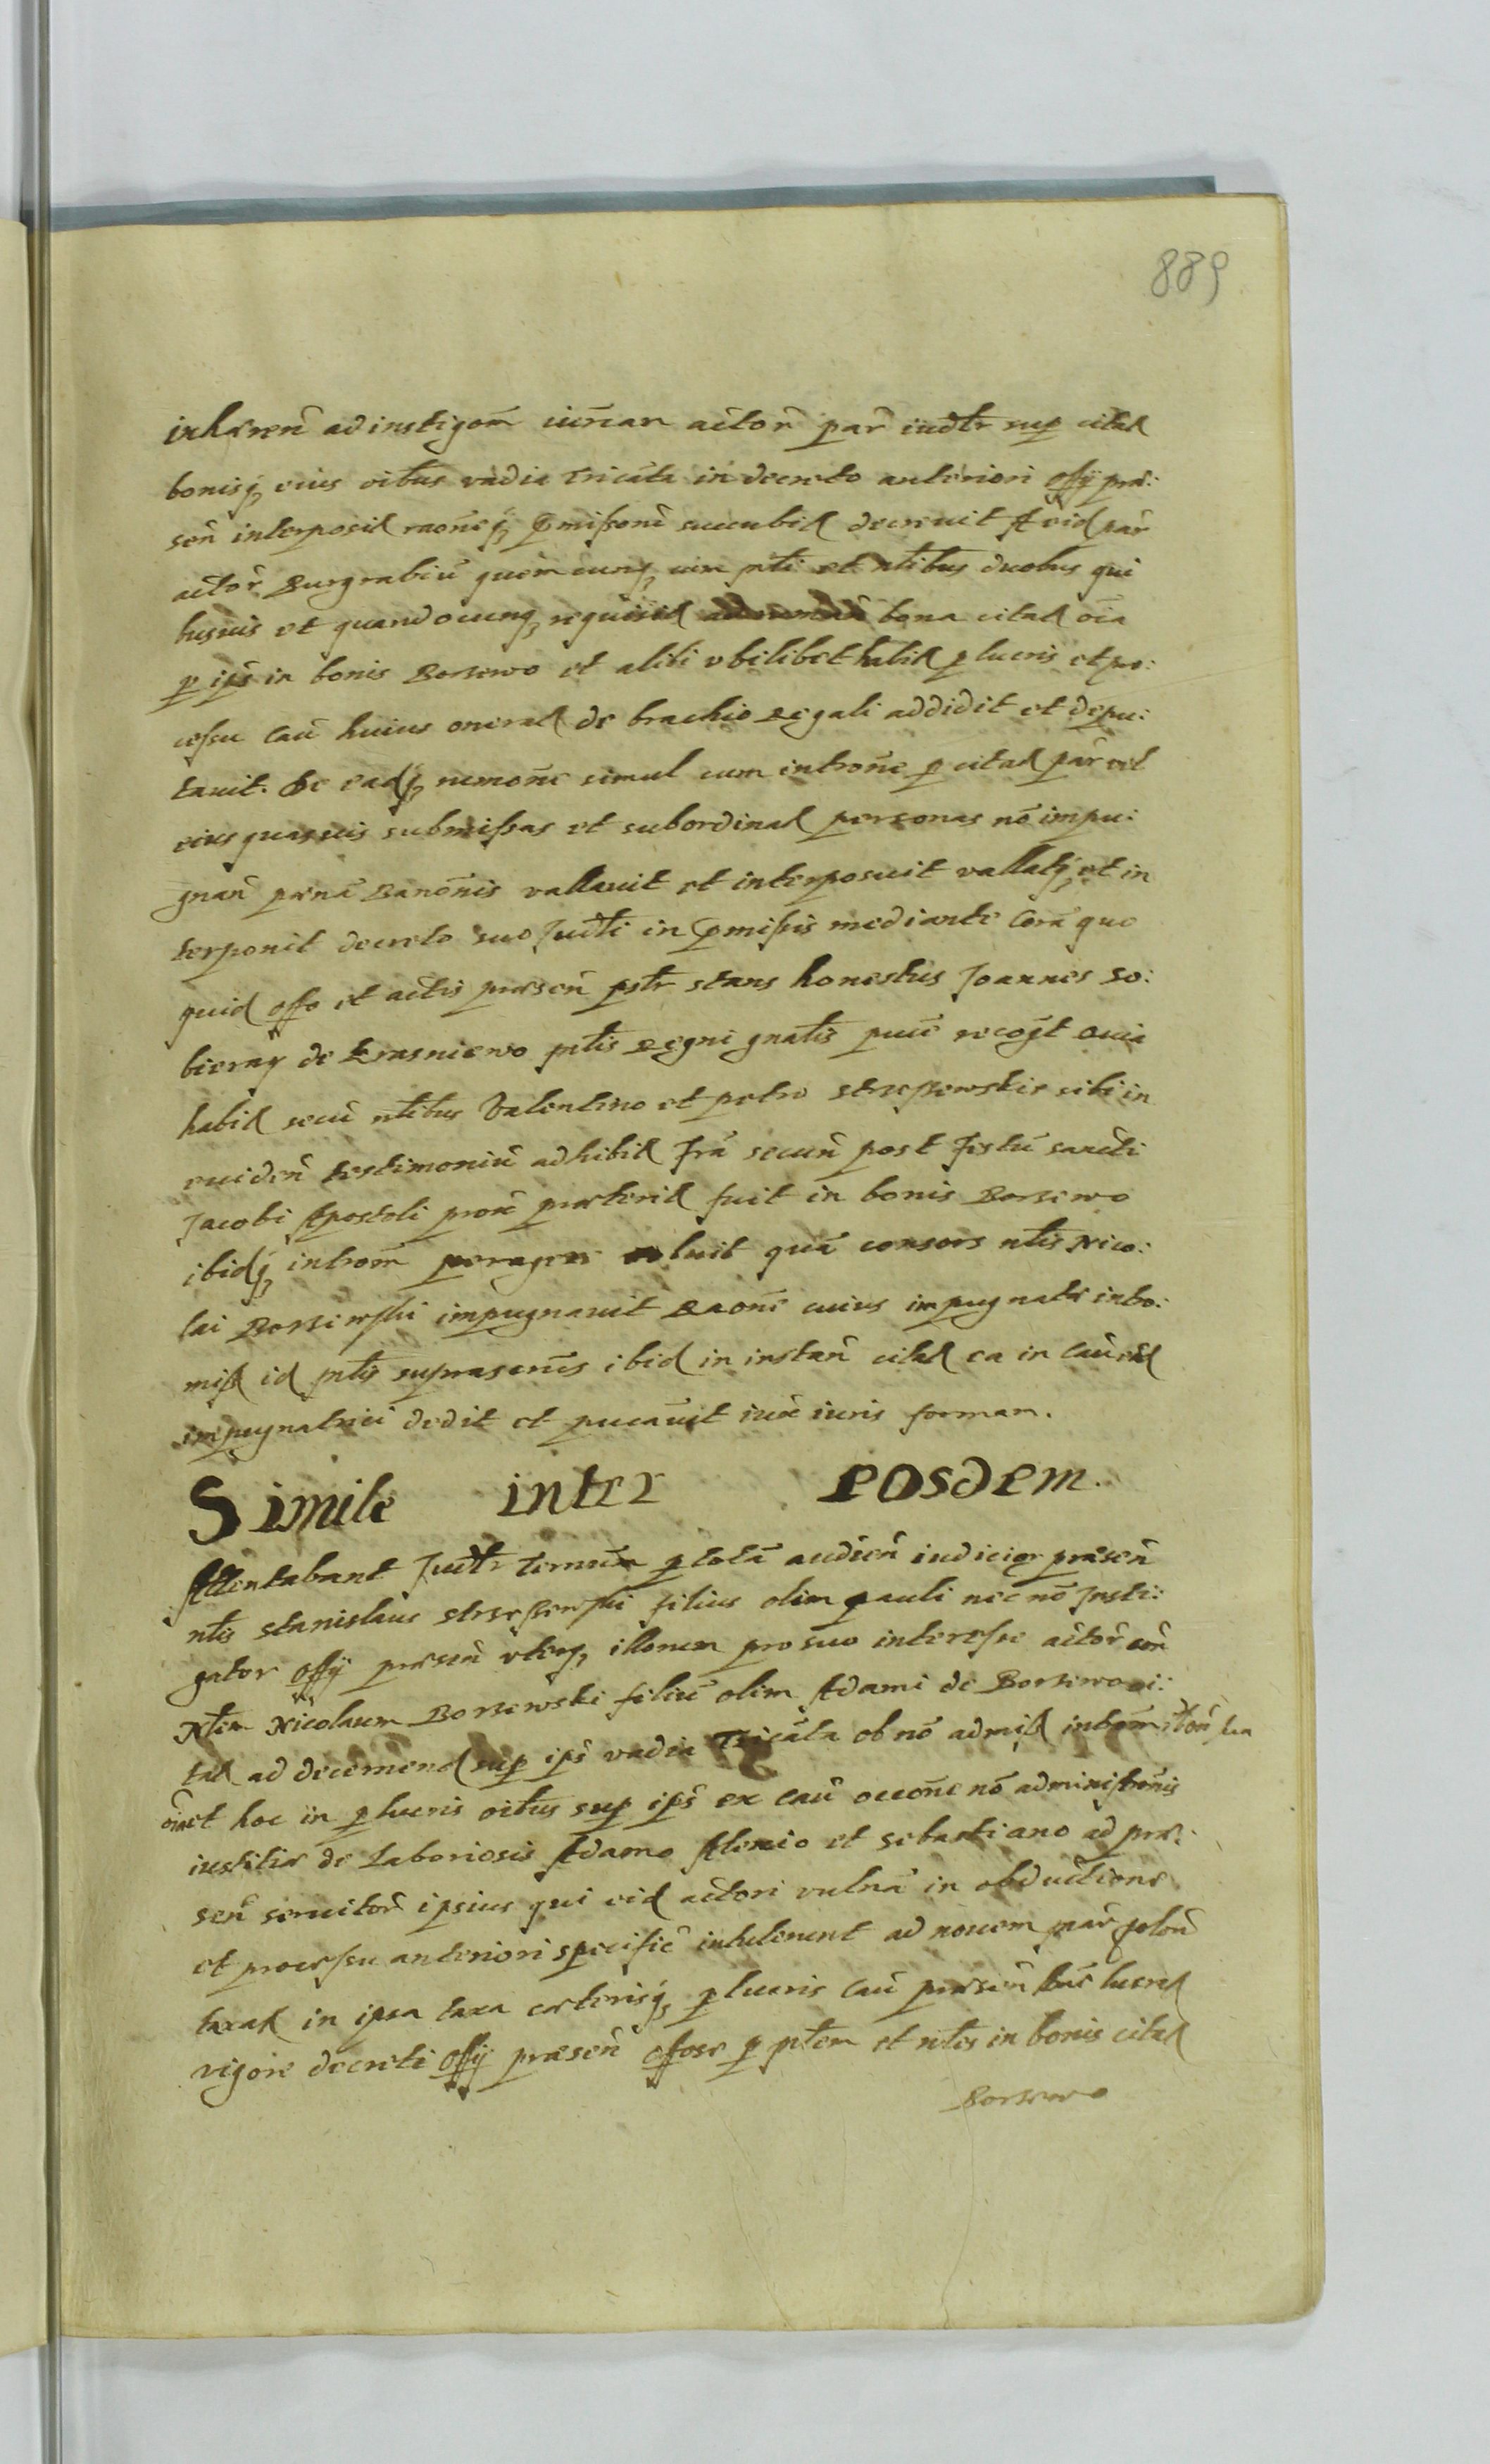 889
inhæren̄ ad instigom̄ iur̄ an actor̄ par̄ iudtr sup citat
bonisq, eius oib̄us vadia tricāta in decreto anteriori offy præ:
sen̄ interposit raōneq, præmissorū succubit decrevit Ac eid par
actor̄ Burgrabiū quemcunq, cum ptli et ntlibus duobus qui
busuis et quandocunq, requisit bona citat oīa
p ips̄ in bonis Borzewo et alibi vbilibet habit p lucris et pro:
cessu cau̅ huius onerat de brachio Regali addidit et depu:
tauit. De eadq, rumōne simul cum introm̄e p citat par̄ vel
eius quasuis submissas et subordinat personas nō impu:
gnan̄ pænā Banōnis vallauit et interposuit vallatq, et in
terponit decreto suo Judti in præmissis mediante Corā quo
quid offo et actis præsen̄ pstr stans honestus Joannes So:
bieray de Krasniewo ptlis Regni gn̄atis puū recogt Quia
habit secū ntlibus Valentino et Petro Strzeszewskie sibi in
euiden̄ testimoniū adhibit Fr̄a secun̄ post Festū sancti
Jacobi Apostoli prox̄ præterit fuit in bonis Borzewo
ibidq, introm̄ peragere voluit quā consors ntlis Nico:
lai Borzewski impugnauit Raōne cuius impugnatæ intro:
miss id ptlis suprascr̄us ibid in instan̄ citat ea in cau̅ eid
impugnatrici dedit et pucauit iux̄ iuris formam.
Simile inter eosdem.
Attentabant Judtr termin̄ p totā audien̄ iudiciæ præsen̄
ntlis Stanislaus Strzeszewski filius olim Pauli nec nō Insti:
gator offy præsen̄ vterq, illorum pro suo interesse actor̄ con̄
Ntlem Nicolaum Borzewski filiū olim Adami de Borzewo ci:
tat ad decernend sup ips̄ vadia Tricāta ob nō admiss introm̄
et hoc in p lucris oib̄us sup ips̄ ex cau̅ occōne nō administrōnis
iustitiæ de Laboriosis Adamo Alexio et Sebastiano ad præ:
sen̄ seruitor̄ ipsius qui eid actori vulnā in obductione
et processu anteriori specific̄ intulerunt ad nouem mar̄ polon̄
taxat in ipsa taxa cæterisq, p lucris cau̅ præsen̄ lucrat
vigore decreti offy præsen̄ offose p ptlem et ntles in bonis citat
Borzewo